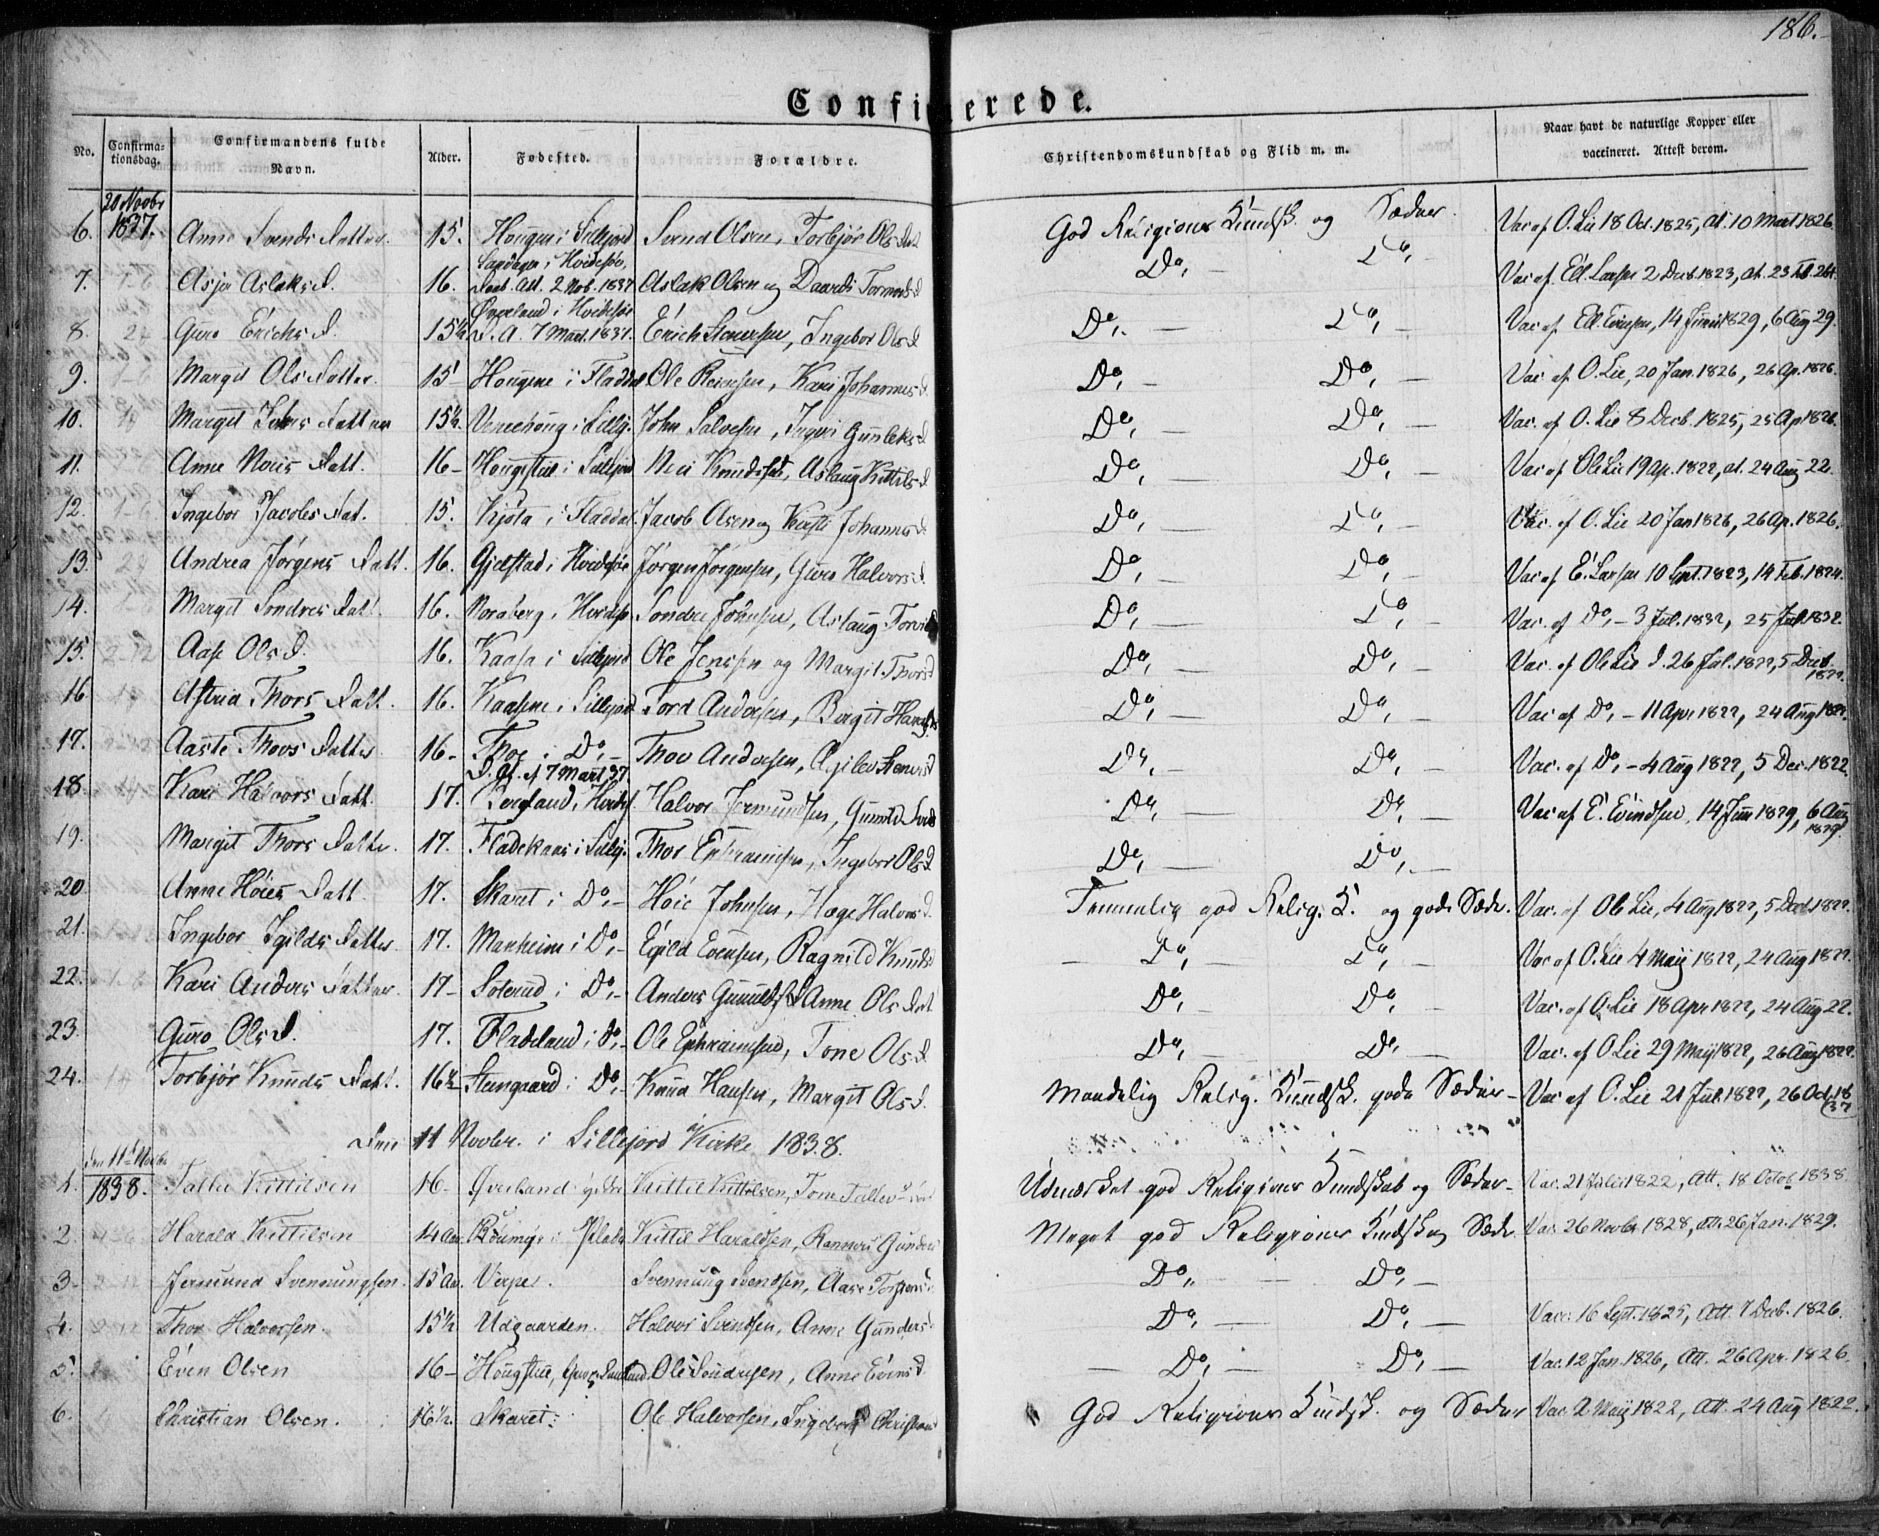 186.
Confirmerede.
No. Confirmationsdag. Confirmandens fulde Navn. Alder. Fødested. Forældre. Christendomskundskab og Flid m. m. Naar havt de naturlige Kopper eller vaccineret. Attest derom.
20 Novbr 1837.
6. Anne Svends Datter. 15. Sillejord Svend Olsen, Torbjør Ols Dat God Religions Kundsk. og Sæder. Vac af O. Lie 18 Oct. 1825, at. 10 Mart 1826.
7. Aslaks D. 16. i Hvidesøe, Att. 2 Nob. 1837 Aslak Olsen og D Do, — Do, — Vac af Ell. Larsen 2 Decb 1823, at. 23
8. Guro Erichs D. 15½ Øverland i Hvidesøe D. A. 7 Mart. 1837. Erich, Ingebor Ols D Do, — Do, — Vac af Ell. Evensen, 14 Junii 1829, 6 Aug 29.
9. Margit Ols Datter. 15 — Hougene i Fladdal Ole, Kari Johannes D. Do, — Do, — Vac. af O. Lie, 20 Jan. 1826, 26 Ap. 1826.
10. Margit Johns Datter 15½ i Sillej. John Salvesen, Ingeri Gunleks D Do, — Do, — Vac. af O. Lie 8 Decb. 1825, 25 Ap 1826.
11. Anne Datt. 16 — Hougstue i Sillejord Knudsen, Aslaug Kittils D Do, — Do, — Vac af Ole Lie 19 Ap. 1822, at. 24 Aug 22.
12. Ingebor Jacobs Dat. 15. i Fladdal. Jacob Olsen og Kirsti Johannes D Do, — Do, — Vac. af O. Lie 20 Jan 1826, 26 Ap. 1826.
13. Andrea Jørgens Datt. 16. Gjelstad i Hvidesøe Jørgen Jørgensen, Guro Halvors D. Do, — Do, — Vac af E. Larsen 10 Sept. 1823, 14 Feb. 1824.
14. Margit Sondres Datt. 16. i Hvidesøe Sondre Johnsen, Aslaug Do, — Do, — Vac. af Do, — 3 Jul. 1832, 25 Jul. 1832.
15. Aase Ols D. 16. Kaasa i Sillejord Ole Jenssen og Margit Thors D Do, — Do, — Vac. af Ole Lie d. 26 Jul. 1822, 5 Decb. 1822.
16 Thors Datt. 16. Kaasene i Sillejord Tord Andersen, Birgit Do, — Do, — Vac af Do, — 11 Apr 1822, 24 Aug 1822.
17. Aaste Thovs Datter 16 — i Do, — Thov Andersen, Do, — Do, — Vac. af Do, — 4 Aug 1822, 5 Dec. 1822.
18. Kari Halvors Datt. 17. D. At. af 7 Mart 37. Bergland i Hvides. Halvor Jermundsen, Gunild Do, — Do, — Vac af E. Evindsen, 14 Juni 1829, 6 Aug 1829.
19. Margit Thors Datter. 17. Fladekaas i Sillej. Thor Ephraimsen, Ingebor Ols D Do, — Do, —
20. Anne Høies Datt. 17. Skaret i Do, — Høie Johnsen, Hæge Halvors D. Temmelig god Relig. K. og gode Sæder. Vac. af Ole Lie, 4 Aug 1822, 5 Decb 1822.
21. Ingebor Egilds Datter. 17. Manheim i Do, — Egild Evensen, Ragnild Knuds D — Do, — Do, — Vac af O. Lie 4 Maij 1822, 24 Aug 1822.
22. Kari Anders Datter. 17 — Solerud i Do, — Anders Gunuldsen Anne Ols Dat Do, — Do, — Vac. af O. Lie 18 Apr 1822, 24 Aug 22.
23. Guro Ols D. 17. Fladeland i Do, — Ole Ephraimsen, Tone Ols D. Do, — Do, — Vac. af O Lie 29 Maij 1822, 26 Aug 1822.
24. Torbjør Knuds Datt. 16½ Steengaard i Do, — Knud Hansen, Margit Ols D. Maadelig Relig. Kundsk. gode Sæder — Vac af O. Lie 21 Jul. 1822, 26 Oct. 18 37
Den 11 Novbr. i Sillejord Kirke 1838.
den 11t Novbr 1838.
1. Kittilsen 16 — Øverland Kittil Kittilsen, Tone Udmærket god Religions Kundskab og Sæder — Vac. 21 Julii 1822, Att. 18 Octob 1838.
2. Harald Kittilsen 14 Aar Kittil Haraldsen, Gunders Meget god Religions Kundsk og Sæder. Vac. 26 Novbr 1828, Att. 26 Jan. 1829.
3. Jermund Svennungsen. 15 Aar Verpe. Svennung Svendsen, Aase Torstens Do, — Do, —
4. Thor Halvorsen. 15½ Udgaarden. Halvor Svendsen, Anne Gunders Do, — Do, — Vac: 16 Sept. 1825, Att. 7 Decb. 1826.
5. Even Olsen 16 — Hougstue, Ole Sondresen, Anne Evens D — Do, — Do, — Vac. 12 Jan. 1826, Att. 26 Apr. 1826.
6. Christian Olsen. 16½. Skaret: Ole Halvorsen, Ingeborg God Religions Kundsk. og Sæder Vac. 2 Maij 1822, Att. 24 Aug 1822.